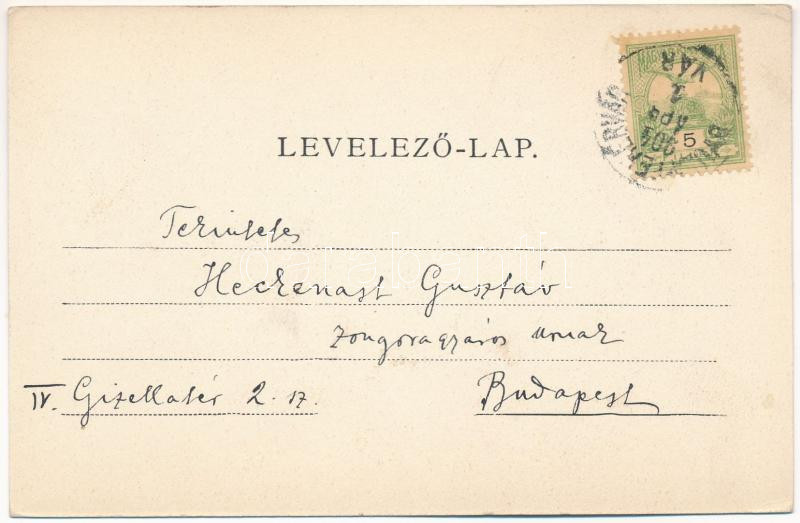 LEVELEZŐ-LAP.
5
904
APR
2
VÁR
Tekintetes
Heckenast Gusztáv
Zongoragyáros urnak
IV. Gizellatér 2. sz.
Budapest